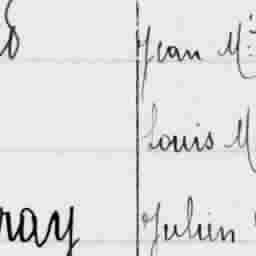 Jean M
Louis M
ray Julien